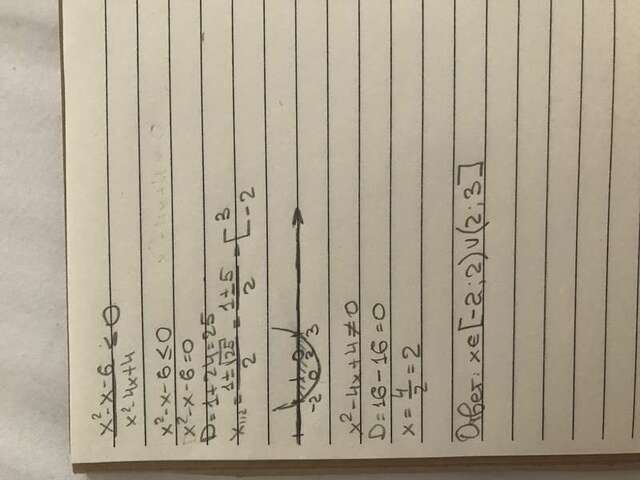 x²-x-6 / x²-4x+4 ≤ 0
x²-x-6 ≤ 0
x²-x-6=0
D=1+24=25
x₁,₂ = 1±√25 / 2 = 1±5 / 2 = [ 3 -2
-2 0 2 3
x²-4x+4≠0
D=16-16=0
x= 4/2 =2
Ответ: x∈[-2;2)∪(2;3]